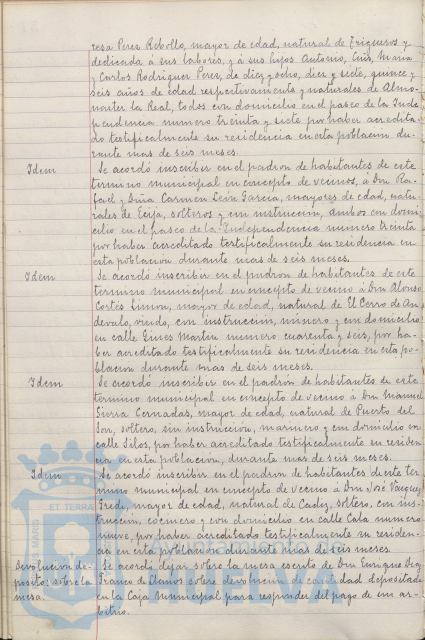 resa Perez Rebollo, mayor de edad, natural de Trigueros y
dedicada á sus labores, y á sus hijos Antonio, Luis, Maria
y Carlos Rodriguez Perez, de diez y ocho, diez y siete, quince y
seis años de edad respectivamente y naturales de Almo-
naster la Real, todos con domicilio en el paseo de la Inde
pendencia numero treinta y siete por haber acredita-
do testificalmente su residencia en esta poblacion du-
rante mas de seis meses.
Idem Se acordó inscribir en el padron de habitantes de este
termino municipal en concepto de vecinos, á Don Ra-
fael y Doña Carmen León Garcia, mayores de edad, natu-
rales de Ecija, solteros y con instruccion, ambos con domi-
cilio en el paseo de la Independencia numero treinta
por haber acreditado testificalmente su residencia en
esta poblacion durante mas de seis meses.
Idem Se acordó inscribir en el padron de habitantes de este
termino municipal en concepto de vecino á Don Alonso
Cortés Limon, mayor de edad, natural de El Cerro de An
devalo, viudo, con instruccion, minero y con domicilio
en calle Gines Martin numero cuarenta y seis, por ha-
ber acreditado testificalmente su residencia en esta po-
blacion durante mas de seis meses.
Idem Se acordó inscribir en el padrón de habitantes de este
término municipal en concepto de vecino á Don Manuel
Sierra Cernadas, mayor de edad, natural de Puerto del
Son, soltero, sin instruccion, marinero y con domicilio en
calle Silos, por haber acreditado testificalmente su residen
cia en esta poblacion, durante mas de seis meses.
Idem Se acordó inscribir en el padron de habitantes de este ter
mino municipal en concepto de vecino á Don José Vazquez
mayor de edad, natural de Cadiz, soltero, con ins-
truccion, cocinero y con domicilio en calle Cala numero
nueve, por haber acreditado testificalmente su residen-
cia en esta poblacion durante mas de seis meses.
Devolucion de- Se acordó dejar sobre la mesa escrito de Don Enrique Diaz
posito; sobre la Franco de Llanos sobre devolucion de cantidad depositada
mesa. en la Caja Municipal para responder del pago de un ar-
bitrio.